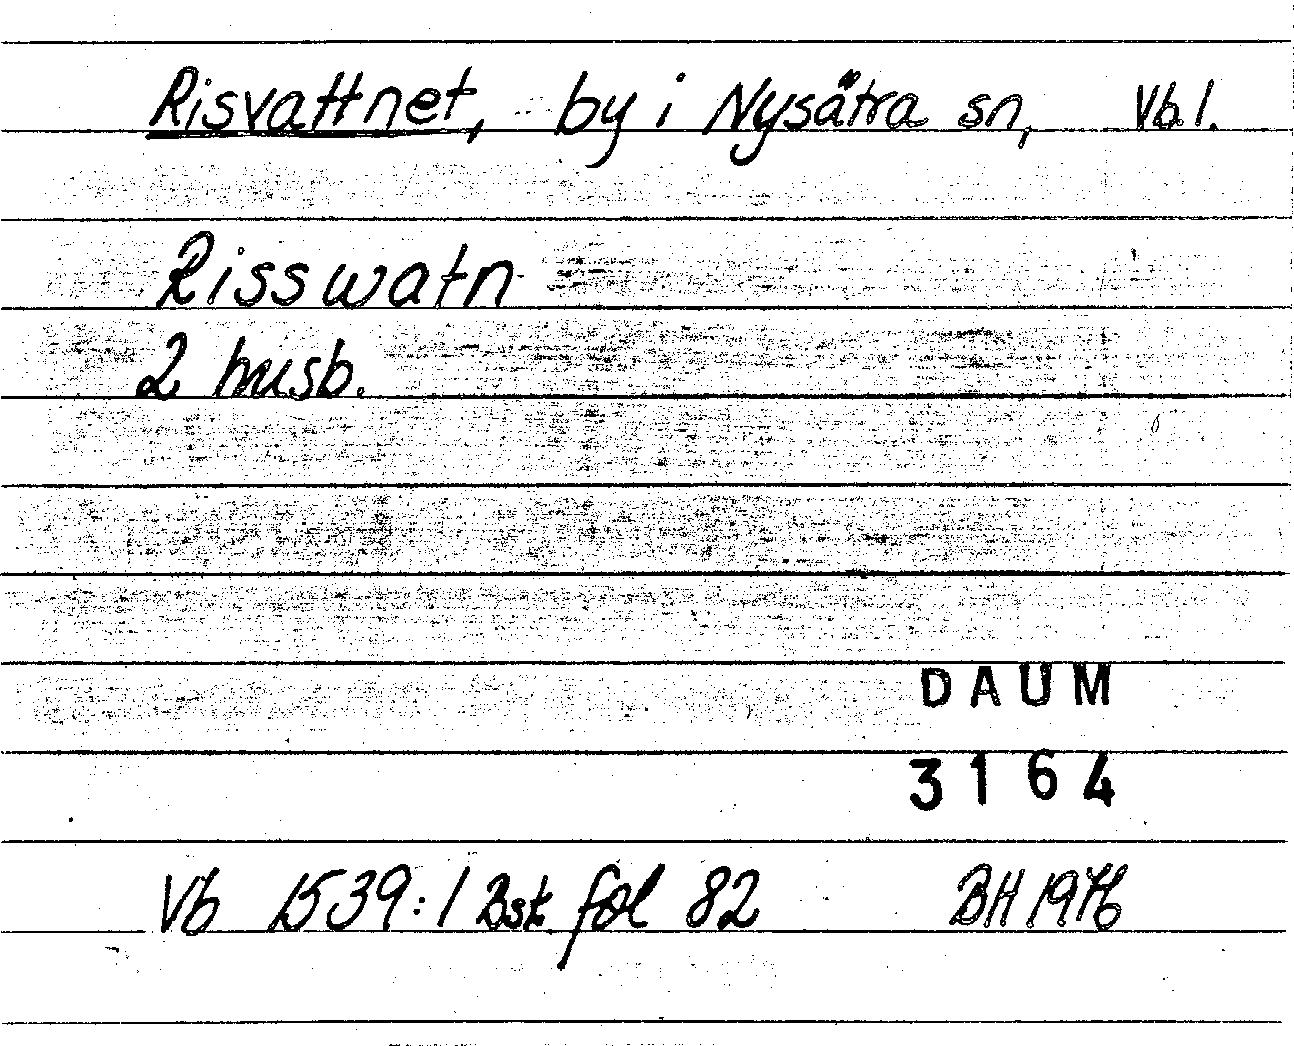 Risvattnet, by i Nysätra sn, Vb l.
Risswatn
2 husb.
DAUM
3164
Vb 1539:1 Bsk fol 82 BH 1976